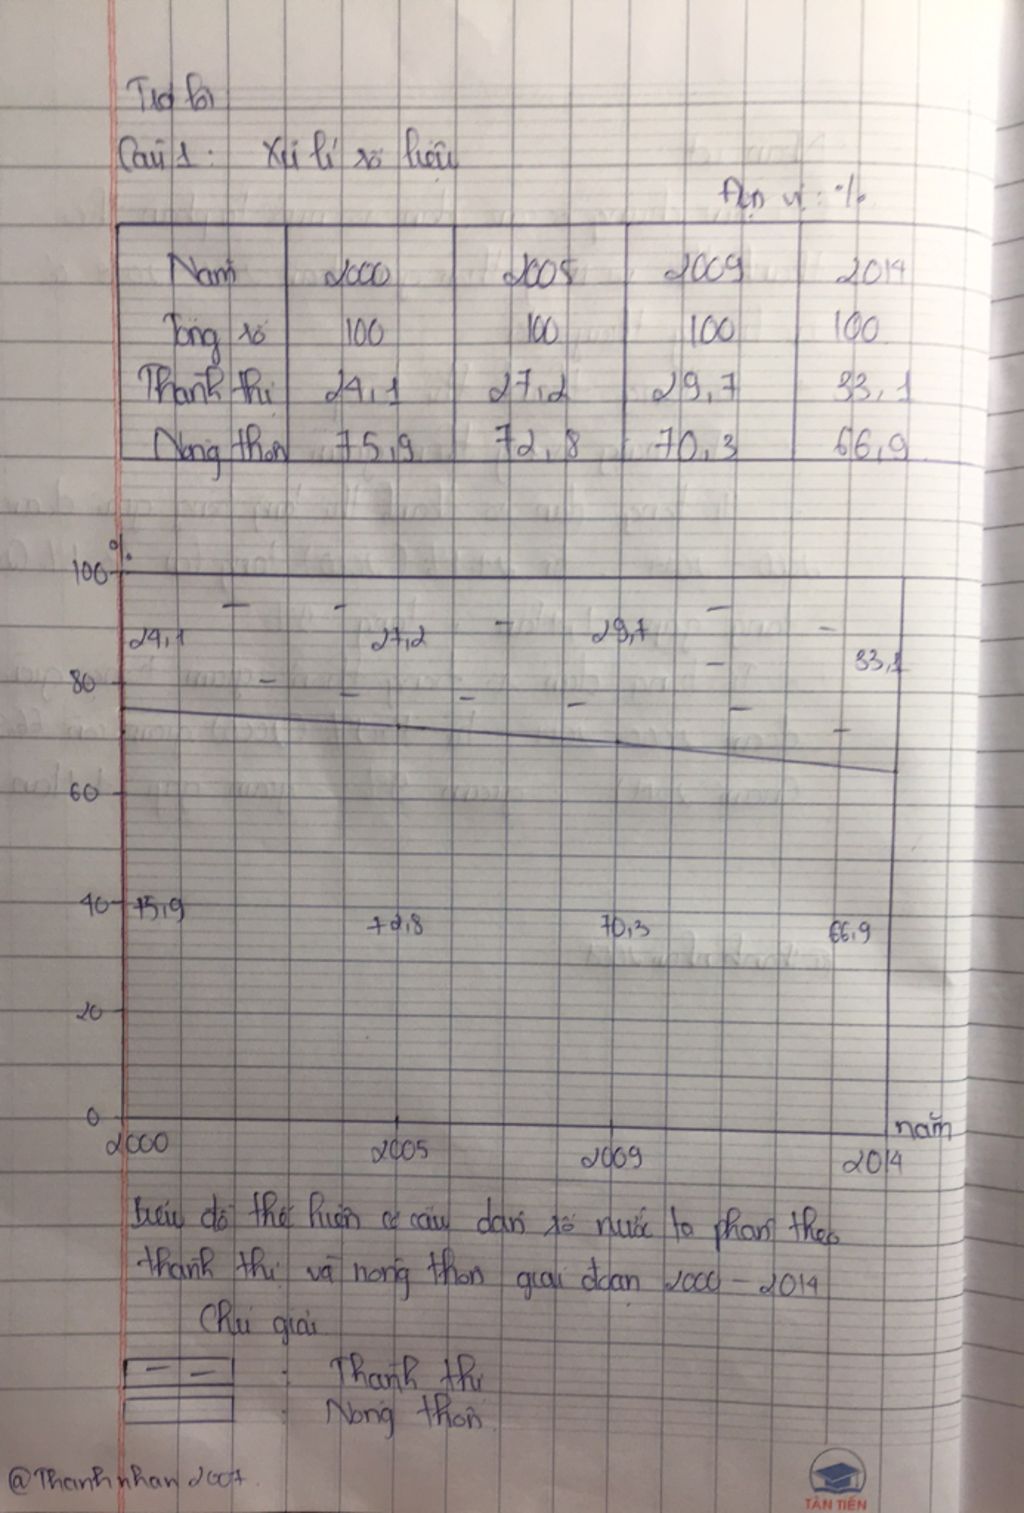 Trả lời
Câu 1: Xử lí số liệu
Đơn vị: %
Năm 2000 2005 2009 2014
Tổng số 100 100 100 100
Thành thị 24,1 27,2 29,7 33,1
Nông thôn 75,9 72,8 70,3 66,9
%
100
24,1 27,2 29,7 33,1
80
60
40 75,9 72,8 70,3 66,9
20
0 năm
2000 2005 2009 2014
Biểu đồ thể hiện cơ cấu dân số nước ta phân theo
thành thị và nông thôn giai đoạn 2000 - 2014
Chú giải
: Thành thị
: Nông thôn
@Thanhnhan2007.
TÂN TIẾN